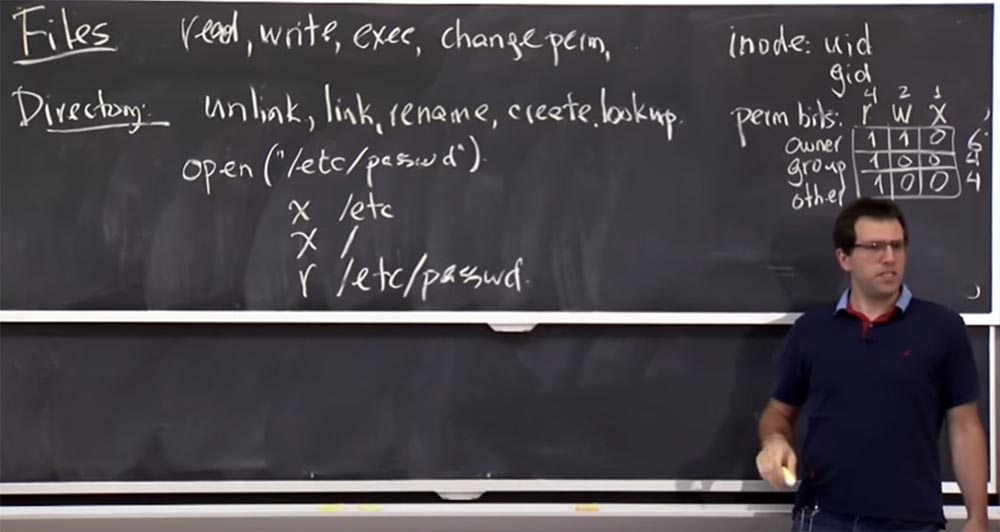 Files read, write, exec, change perm,
Directory: unlink, link, rename, create, lookup.
open("/etc/passwd")
x /etc
x /
r /etc/passwd.
inode: uid
gid
4 2 1
perm bits: r w x
owner 1 1 0 6
group 1 0 0 4
other 1 0 0 4